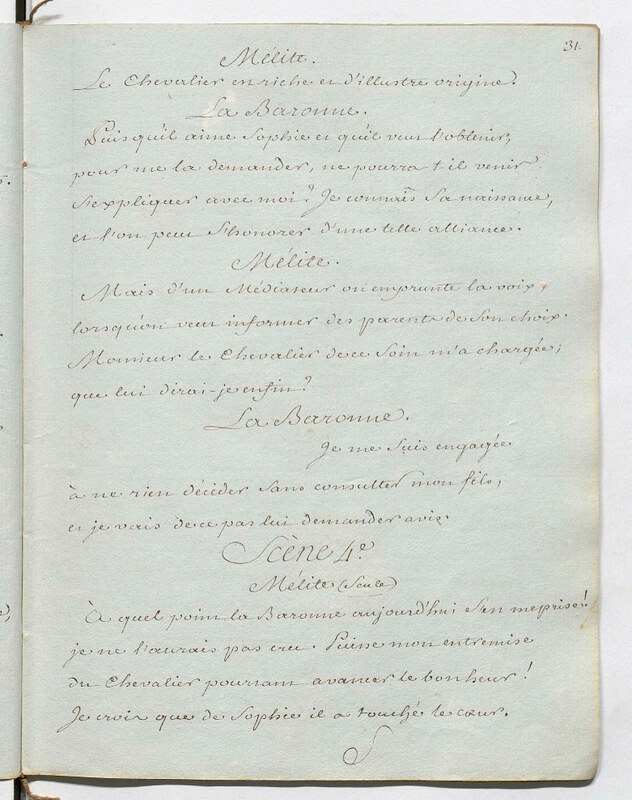 31.
Mélite.
Le Chevalier est riche et d'illustre origine.
La Baronne.
Puisqu'il aime Sophie et qu'il veut l'obtenir,
pour me la demander, ne pourra-t-il venir
S'expliquer avec moi? Je connais Sa naissance,
et l'on peut S'honorer d'une telle alliance.
Mélite.
Mais d'un Médiateur on emprunte la voix,
lorsqu'on veut informer des parents de Son choix.
Monsieur le Chevalier de ce Soin m'a chargée;
que lui dirai-je enfin?
La Baronne.
Je me Suis engagée
à ne rien décider Sans consulter mon fils,
et je vais de ce pas lui demander avis.
Scène 4e
Mélite (Seule)
À quel point la Baronne aujourd'hui S'en méprise!
je ne l'aurais pas cru. Puisse mon entremise
du Chevalier pourtant avancer le bonheur!
Je crois que de Sophie il a touché le cœur.